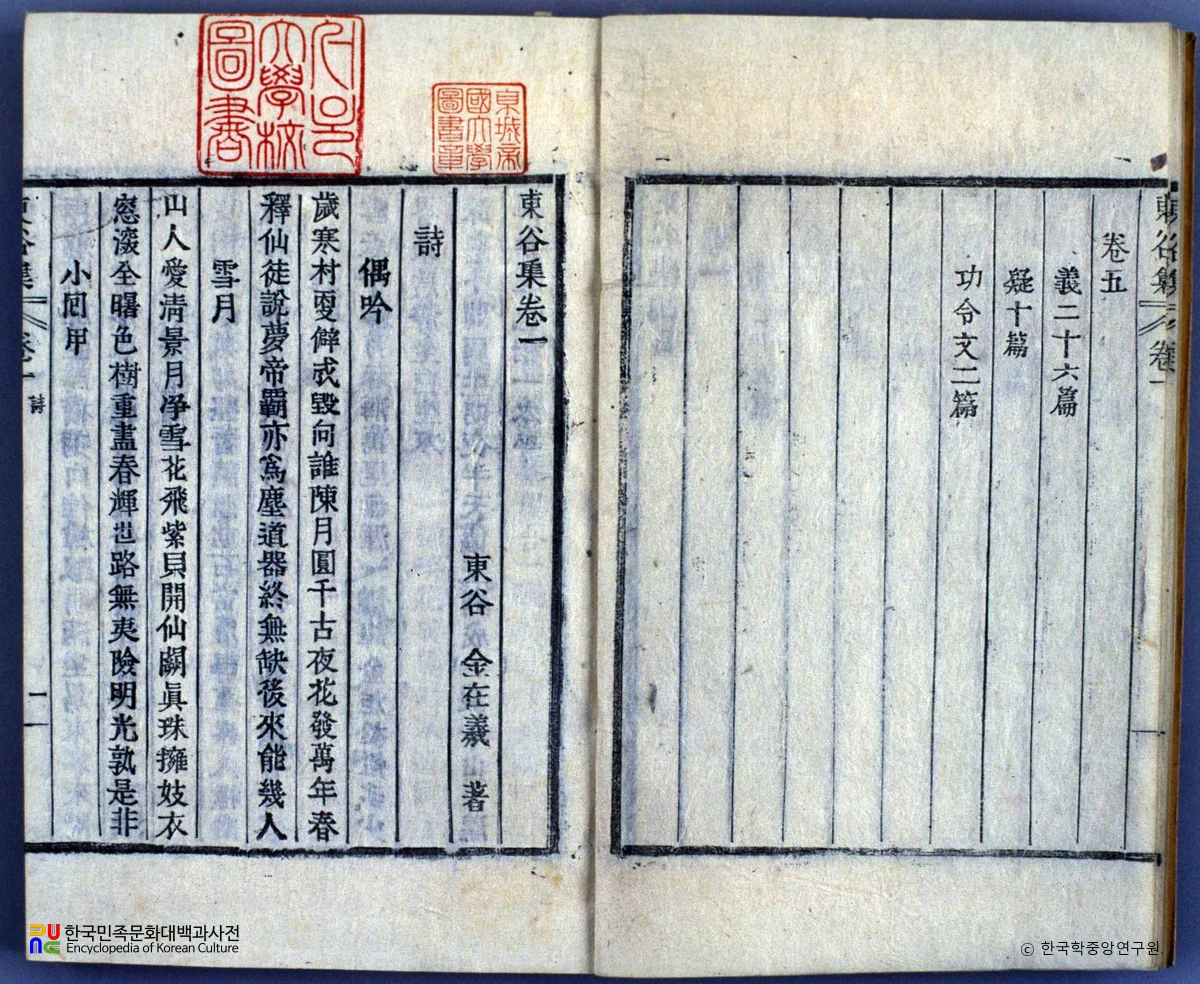 서울大學校圖書
京城帝國大學圖書章
東谷集 卷一
卷五
義二十六篇
疑十篇
功令文二篇
東谷集卷一
東谷 金在義 著
詩
偶吟
歲寒村更僻成毀向誰陳月圓千古夜花發萬年春
釋仙徒說夢帝霸亦爲塵道器終無缺後來能幾人
雪月
山人愛淸景月净雪花飛紫貝開仙闕眞珠擁妓衣
全曙色樹重盡春輝世路無夷險明光孰是非
小回甲
東谷集 卷一 詩
한국민족문화대백과사전
Encyclopedia of Korean Culture
ⓒ 한국학중앙연구원